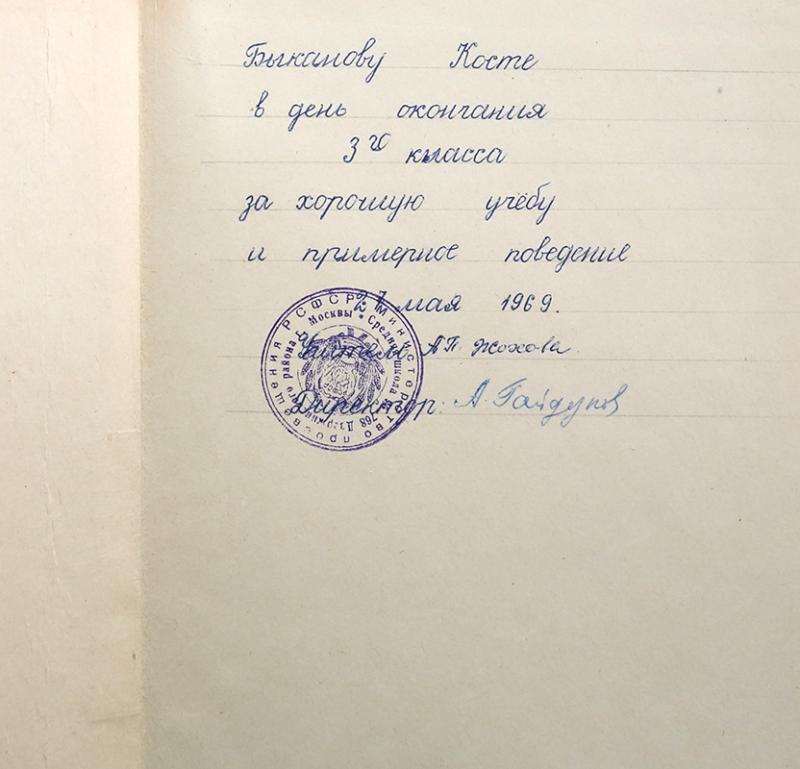 Быканову Косте
в день окончания
3го класса
за хорошую учёбу
и примерное поведение
27 мая 1969.
Учитель АП Жохова
Директор: А. Гайдуков
Министерство просвещения РСФСР
Средняя школа № 768 Дзержинского района г. Москвы